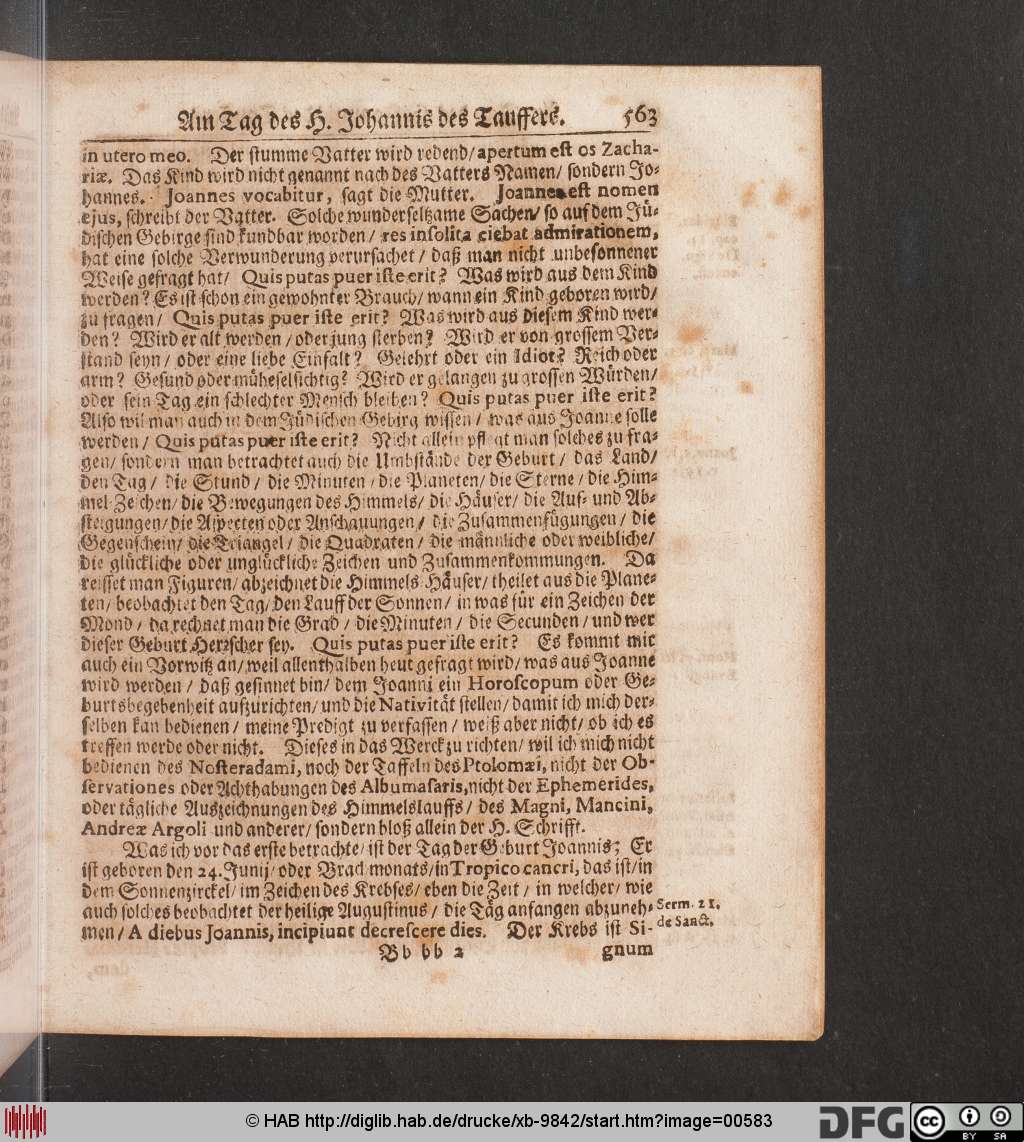 Am Tag des H. Johannis des Tauffers. 563
in utero meo. Der stumme Vatter wird redend/ apertum est os Zacha-
riæ. Das Kind wird nicht genannt nach des Vatters Namen/ sondern Jo-
hannes. Joannes vocabitur, sagt die Mutter. Joannes est nomen
ejus, schreibt der Vatter. Solche wunderseltzame Sachen/ so auf dem Jü-
dischen Gebirge sind kundbar worden/ res insolita ciebat admirationem,
hat eine solche Verwunderung verursachet/ daß man nicht unbesonnener
Weise gefragt hat/ Quis putas puer iste erit? Was wird aus dem Kind
werden? Es ist schon ein gewohnter Brauch/ wann ein Kind geboren wird/
zu fragen/ Quis putas puer iste erit? Was wird aus diesem Kind wer-
den? Wird er alt werden/ oder jung sterben? Wird er von grossem Ver-
stand seyn/ oder eine liebe Einfalt? Gelehrt oder ein Idiot? Reich oder
arm? Gesund oder müheselsichtig? Wird er gelangen zu grossen Würden/
oder sein Tag ein schlechter Mensch bleiben? Quis putas puer iste erit?
Also wil man auch in dem Jüdischen Gebirg wissen/ was aus Joanne solle
werden/ Quis putas puer iste erit? Nicht allein pflegt man solches zu fra-
gen/ sondern man betrachtet auch die Umbstände der Geburt/ das Land/
den Tag/ die Stund/ die Minuten/ die Planeten/ die Sterne/ die Him-
mel-Zeichen/ die Bewegungen des Himmels/ die Häuser/ die Auf- und Ab-
steigungen/ die Aspecten oder Anschauungen/ die Zusammenfügungen/ die
Gegenschein/ die Triangel/ die Quadraten/ die männliche oder weibliche/
die glückliche oder unglückliche Zeichen und Zusammenkommungen. Da
reisset man Figuren/ abzeichnet die Himmels-Häuser/ theilet aus die Plane-
ten/ beobachtet den Tag/ den Lauff der Sonnen/ in was für ein Zeichen der
Mond/ da rechnet man die Grad/ die Minuten/ die Secunden/ und wer
dieser Geburt Herrscher sey. Quis putas puer iste erit? Es kommt mir
auch ein Vorwitz an/ weil allenthalben heut gefragt wird/ was aus Joanne
wird werden/ daß gesinnet bin/ dem Joanni ein Horoscopum oder Ge-
burtsbegebenheit aufzurichten/ und die Nativität stellen/ damit ich mich der-
selben kan bedienen/ meine Predigt zu verfassen/ weiß aber nicht/ ob ich es
treffen werde oder nicht. Dieses in das Werck zu richten/ wil ich mich nicht
bedienen des Nosteradami, noch der Taffeln des Ptolomæi, nicht der Ob-
servationes oder Achthabungen des Albumasaris, nicht der Ephemerides,
oder tägliche Auszeichnungen des Himmelslauffs/ des Magni, Mancini,
Andreæ Argoli und anderer/ sondern bloß allein der H. Schrifft.
Was ich vor das erste betrachte/ ist der Tag der Geburt Joannis; Er
ist geboren den 24. Junij/ oder Brachmonats/ in Tropico cancri, das ist/ in
dem Sonnenzirckel/ im Zeichen des Krebses/ eben die Zeit/ in welcher/ wie
auch solches beobachtet der heilige Augustinus/ die Täg anfangen abzuneh-
men/ A diebus Joannis, incipiunt decrescere dies. Der Krebs ist Si-
Serm. 21.
de Sanct.
Bb bb 2 gnum
© HAB http://diglib.hab.de/drucke/xb-9842/start.htm?image=00583
DFG
cc BY SA